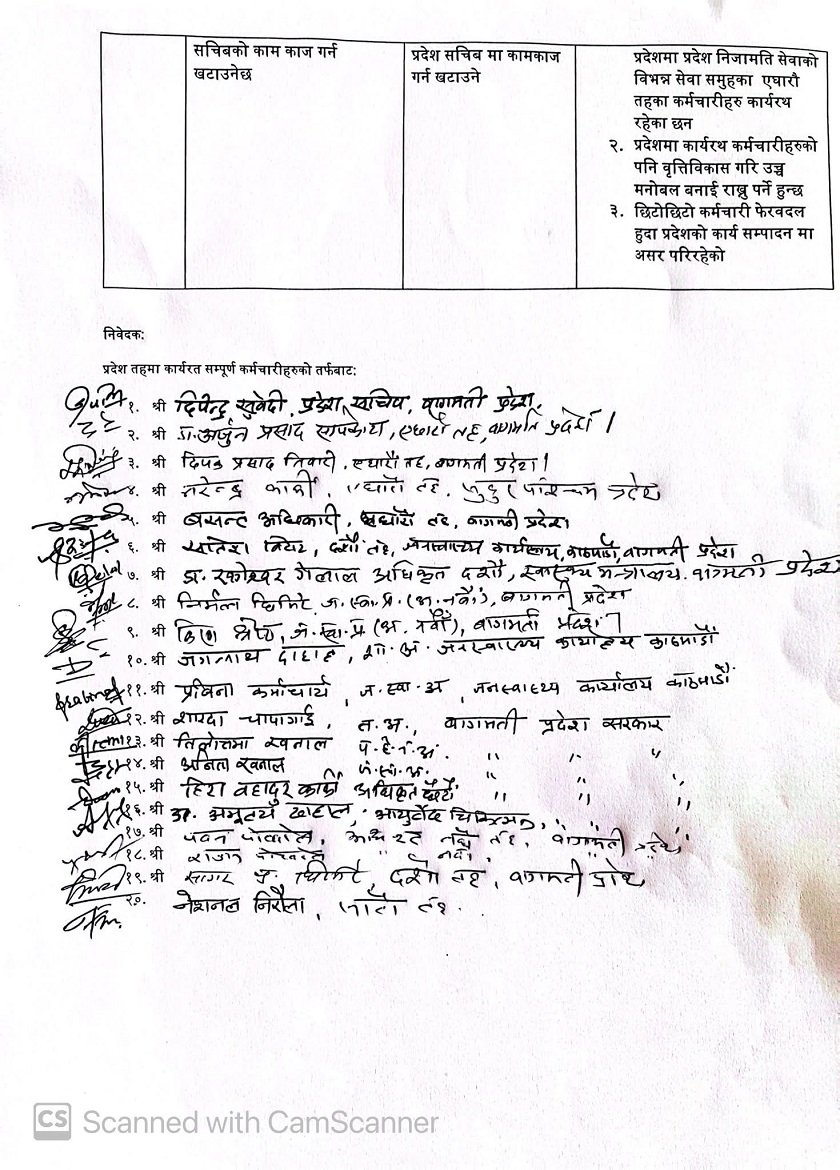 सचिबको काम काज गर्न
खटाउनेछ
प्रदेश सचिब मा कामकाज
गर्न खटाउने
प्रदेशमा प्रदेश निजामति सेवाको
विभन्न सेवा समुहका एघारौ
तहका कर्मचारीहरु कार्यरथ
रहेका छन
२. प्रदेशमा कार्यरथ कर्मचारीहरुको
पनि वृत्तिविकास गरि उच्च
मनोबल बनाई राख्नु पर्ने हुन्छ
३. छिटोछिटो कर्मचारी फेरवदल
हुदा प्रदेशको कार्य सम्पादन मा
असर परिरहेको
निवेदक:
प्रदेश तहमा कार्यरत सम्पूर्ण कर्मचारीहरुको तर्फबाट:
१. श्री दिपेन्द्र सुवेदी, प्रदेश सचिव, वागमती प्रदेश,
२. श्री डा. अर्जुन प्रसाद सापकोटा, एघारौं तह, वागमति प्रदेश ।
३. श्री दिपक प्रसाद तिवारी, एघारौं तह, बागमती प्रदेश ।
४. श्री नरेन्द्र कार्की, एघारौं तह, सुदुर पश्चिम प्रदेश
५. श्री बसन्त अधिकारी, एघारौं तह, बागमती प्रदेश
६. श्री दशौं तह, जनस्वास्थ्य कार्यालय, काठमाडौं, वागमती प्रदेश
७. श्री डा. गेलाल अधिकृत दशौं, स्वास्थ्य मन्त्रालय. वागमती प्रदेश
८. श्री निर्मला घिमिरे ज.स्वा.प्र. (अ. नवौं), बागमती प्रदेश
९. श्री श्रेष्ठ, ज.स्वा.प्र. (अ. नवौं), बागमती प्रदेश
१०. श्री जगन्नाथ दाहाल, जनस्वास्थ्य कार्यालय काठमाडौं
११. श्री प्रविना कर्माचार्य, ज.स्वा.अ, जनस्वास्थ्य कार्यालय काठमाडौं
१२. श्री शारदा चापागाई, त.अ., वागमती प्रदेश सरकार
१३. श्री तिलोत्तमा खनाल प.हे.न.अ. " " "
१४. श्री अनिता खनाल " " "
१५. श्री हिरा बहादुर कार्की अधिकृत " " "
१६. श्री डा. आयुर्वेद " " "
१७. श्री पवन पोखरेल, तह, वागमती प्रदेश
१८. श्री राजन पोखरेल " नवौं " "
१९. श्री सागर घिमिरे, दशौं तह, वागमती प्रदेश
२०. नेशनल निरौला, तह.
CS Scanned with CamScanner